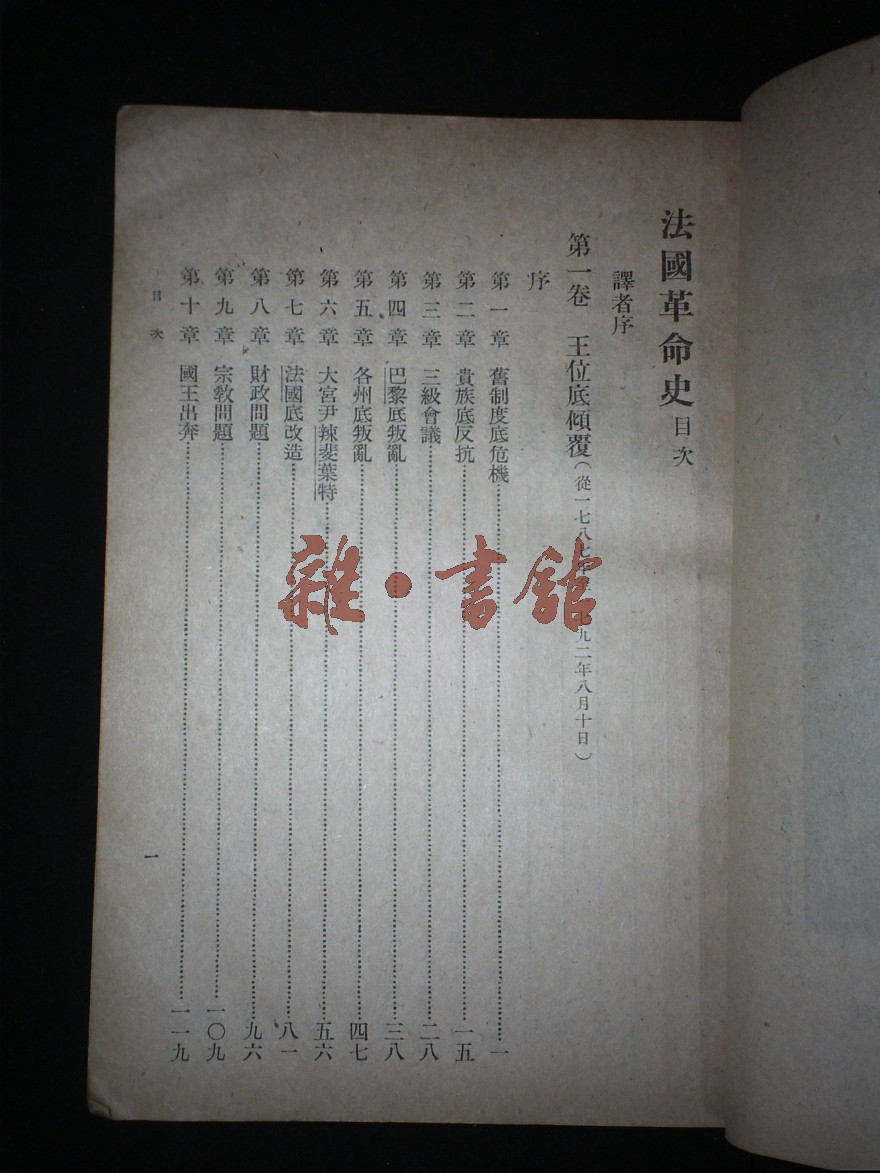 法國革命史目次
譯者序
第一卷 王位底傾覆(從一七八七年 九二年八月十日)
序
第一章 舊制度底危機 一
第二章 貴族底反抗 一五
第三章 三級會議 二八
第四章 巴黎底叛亂 三八
第五章 各州底叛亂 四七
第六章 大宮尹辣斐葉特 五六
第七章 法國底改造 八一
第八章 財政問題 九六
第九章 宗教問題 一〇九
第十章 國王出奔 一一九
目次
一
雜·書館